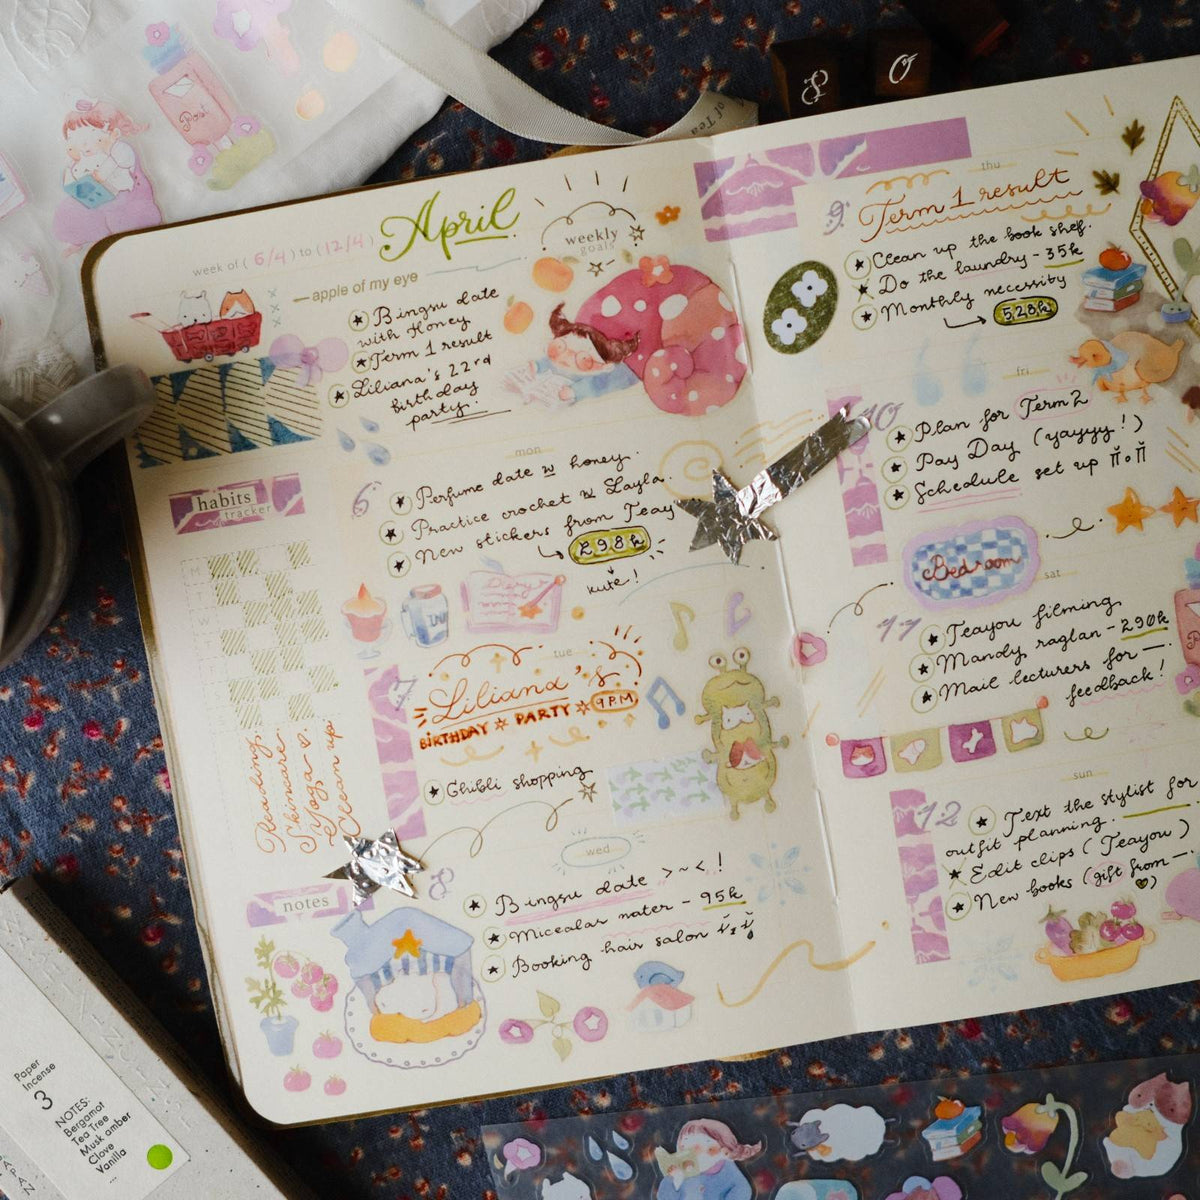 Post
of Tea
S
O
April
week of ( 6/4 ) to ( 12/4 )
weekly
goals
apple of my eye
Bingsu date
with Honey
Term 1 result
Liliana's 22nd
birthday
party.
habits
tracker
M
T
W
Reading
Skincare
Yoga
Clean up
notes
mon
6
Perfume date w honey.
Practice crochet w Layla.
New stickers from Teay
298k
kute!
Diary
tue
7
Liliana's
BIRTHDAY PARTY 9PM
Ghibli shopping
wed
8
Bingsu date >~<!
Micealar water - 95k
Booking hair salon
thu
9
Term 1 result
Clean up the book shelf.
Do the laundry - 35k
Monthly necessity
528k
fri
10
Plan for Term 2
Pay Day (yayyy!)
Schedule set up
Bedroom
sat
11
Teayou filming
Mandy raglan - 290k
Mail lecturers for —
feedback!
sun
12
Text the stylist for
outfit planning.
Edit clips (Teayou)
New books (gift from —.
)
Paper
Incense
3
NOTES:
Bergamot
Tea Tree
Musk amber
Clove
Vanilla
...